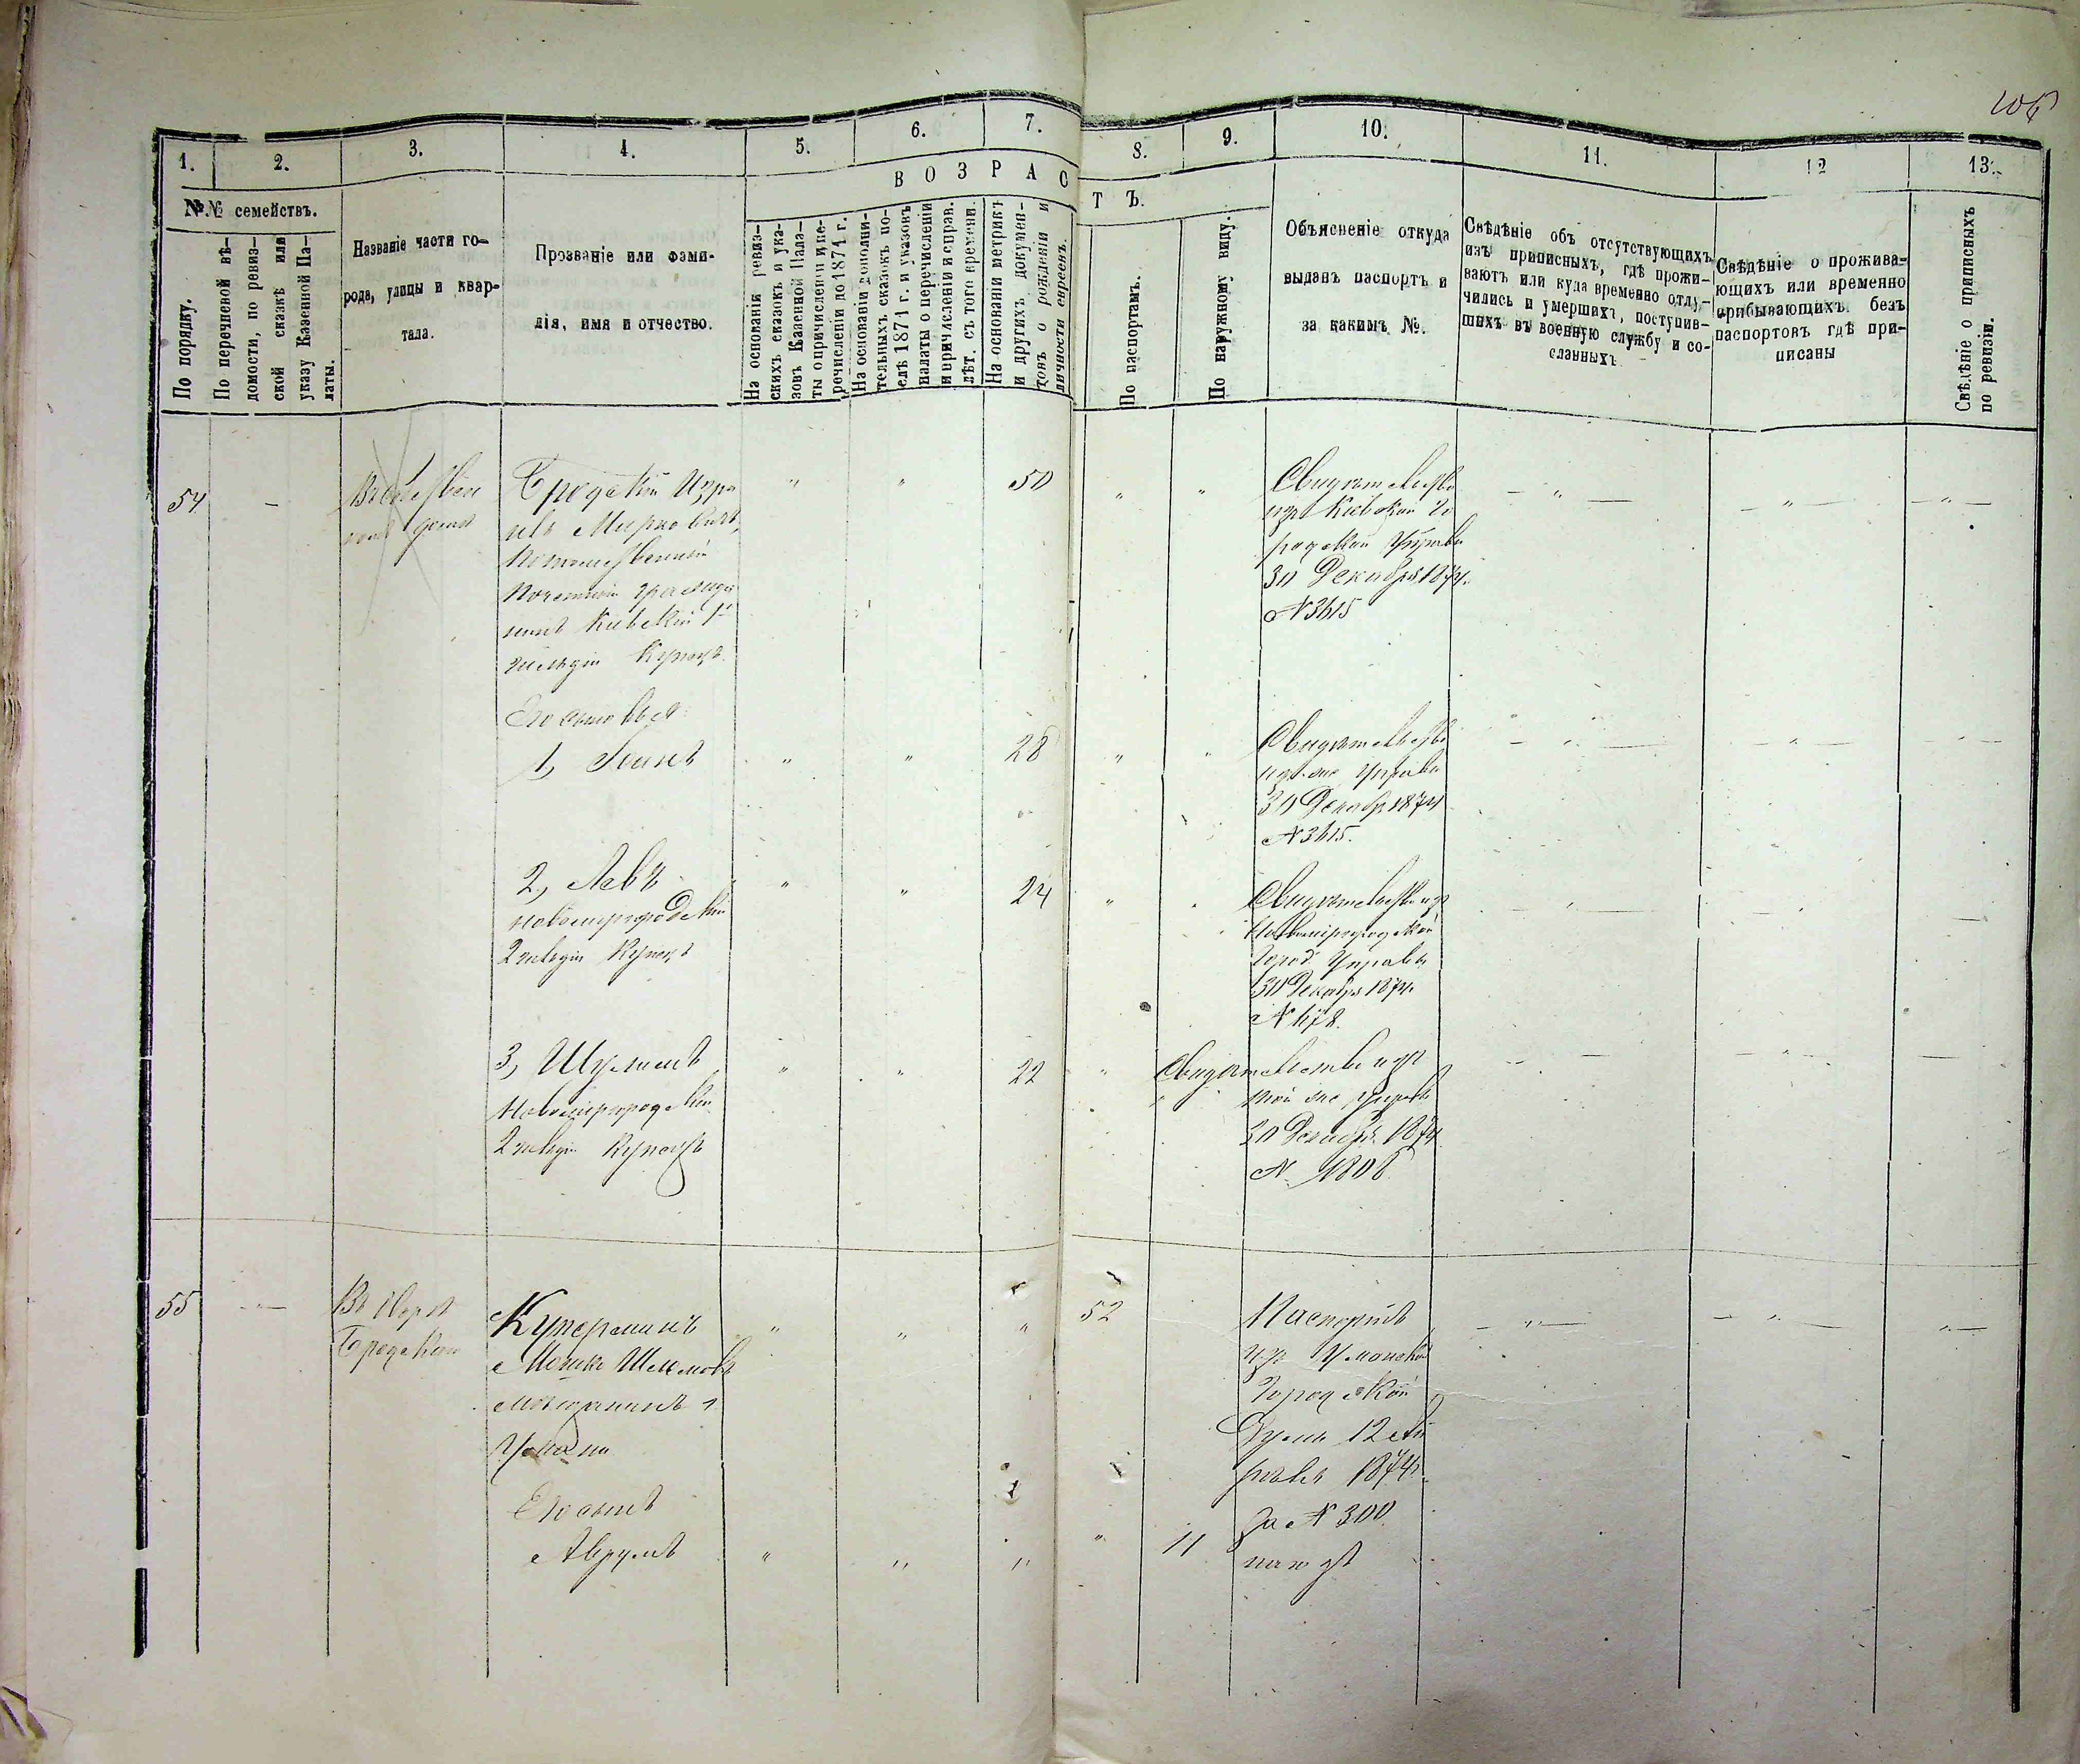 1.
2.
3.
4.
5.
6.
7.
8.
9.
10.
11.
12
13.
№№ семействъ.
По порядку.
По перечневой вѣ-
домости, по ревиз-
ской сказкѣ или
указу Казенной Па-
латы.
Названіе части го-
рода, улицы и квар-
тала.
Прозваніе или фами-
лія, имя и отчество.
ВОЗРАС
ТЪ.
На основаніи ревиз-
скихъ сказокъ и ука-
зовъ Казенной Пала-
ты о причисленіи и пе-
речисленіи до 1874 г.
На основаніи дополни-
тельныхъ сказокъ по-
слѣ 1874 г. и указовъ
палаты о перечисленіи
и причисленіи и справ.
лѣт. съ того времени.
На основаніи метрикъ
и другихъ докумен-
товъ о рожденіи и
личности евреевъ.
По паспортамъ.
По наружному виду.
Объясненіе откуда
выданъ паспортъ и
за какимъ №.
Свѣдѣніе объ отсутствующихъ
изъ приписныхъ, гдѣ прожи-
ваютъ или куда временно отлу-
чились и умершихъ, поступив-
шихъ въ военную службу и со-
сланныхъ
Свѣдѣніе о прожива-
ющихъ или временно
прибывающихъ безъ
паспортовъ гдѣ при-
писаны
Свѣдѣніе о приписныхъ
по ревизіи.
54
—
Въ собствен
номъ домѣ
Бродскій Изра
иль Мееровичъ
Потомственный
Почетный гражда
нинъ Кіевскій 1й
гильдіи Купецъ
50
Свидѣтельство
изъ Кіевской Го
родской Управы
30 Декабря 1874г.
№ 3615
Его сыновья
1, Іоанъ
28
Свидѣтельство
изъ оно Управы
30 Декабр 1874
№ 3615.
2, Левъ
Новомиргородскій
2 гильдіи Купецъ
24
Свидѣтельство изъ
Новомиргородской
Город. Управы
30 Декабря 1874г.
№ 678.
3, Шулимъ
Новомиргородскій
2 гильдіи Купецъ
22
Свидѣтельство изъ
той же Управы
30 Декабр. 1874
№ 1808
55
—
Въ
Бродскаго
Куперманъ
Мошко Шлемовъ
мѣщанинъ г
Умани
52
Паспортъ
изъ Уманской
Городской
Думы 12
1874г.
за № 300
Его сынъ
Аврумъ
11